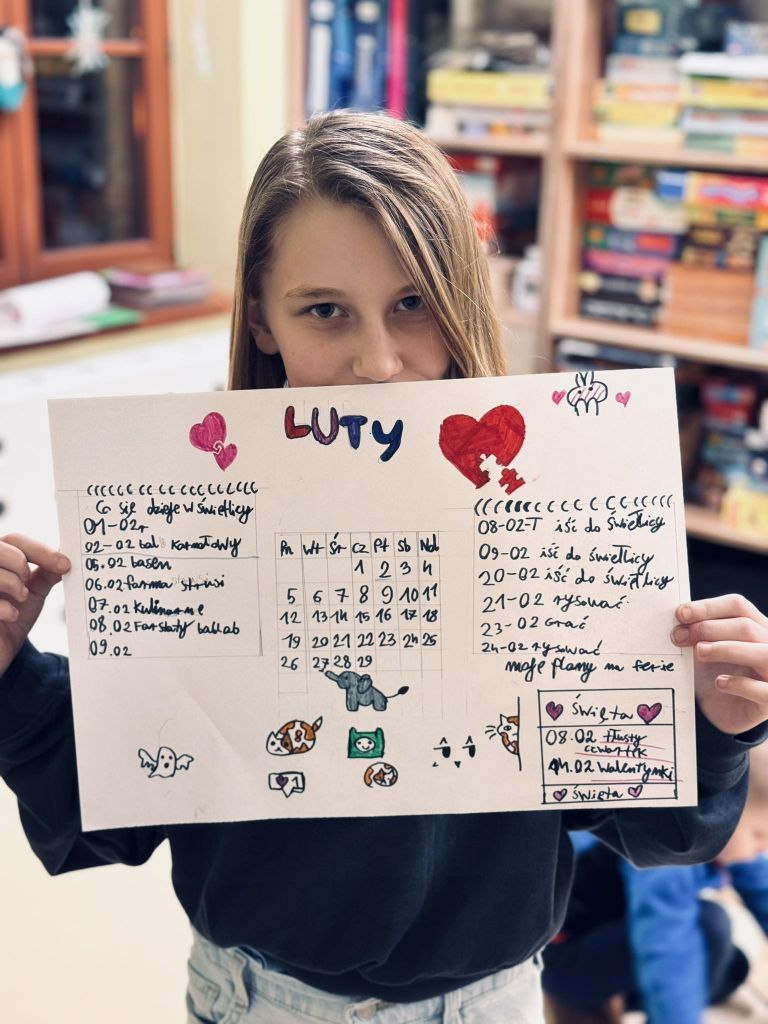 LUTY
Co się dzieje w świetlicy
01-02r
02-02 bal karnałowy
05.02 basen
06.02 farma strusi
07.02 kulinarne
08.02 Warsztaty
09.02
Pn Wt Śr Cz Pt Sb Nd
1 2 3 4
5 6 7 8 9 10 11
12 13 14 15 16 17 18
19 20 21 22 23 24 25
26 27 28 29
08-02-T iść do świetlicy
09-02 iść do świetlicy
20-02 iść do świetlicy
21-02 rysować
23-02 grać
24-02 rysować
moje plany na ferie
Święta
08.02 tłusty
czwartek
14.02 walentynki
święta
1